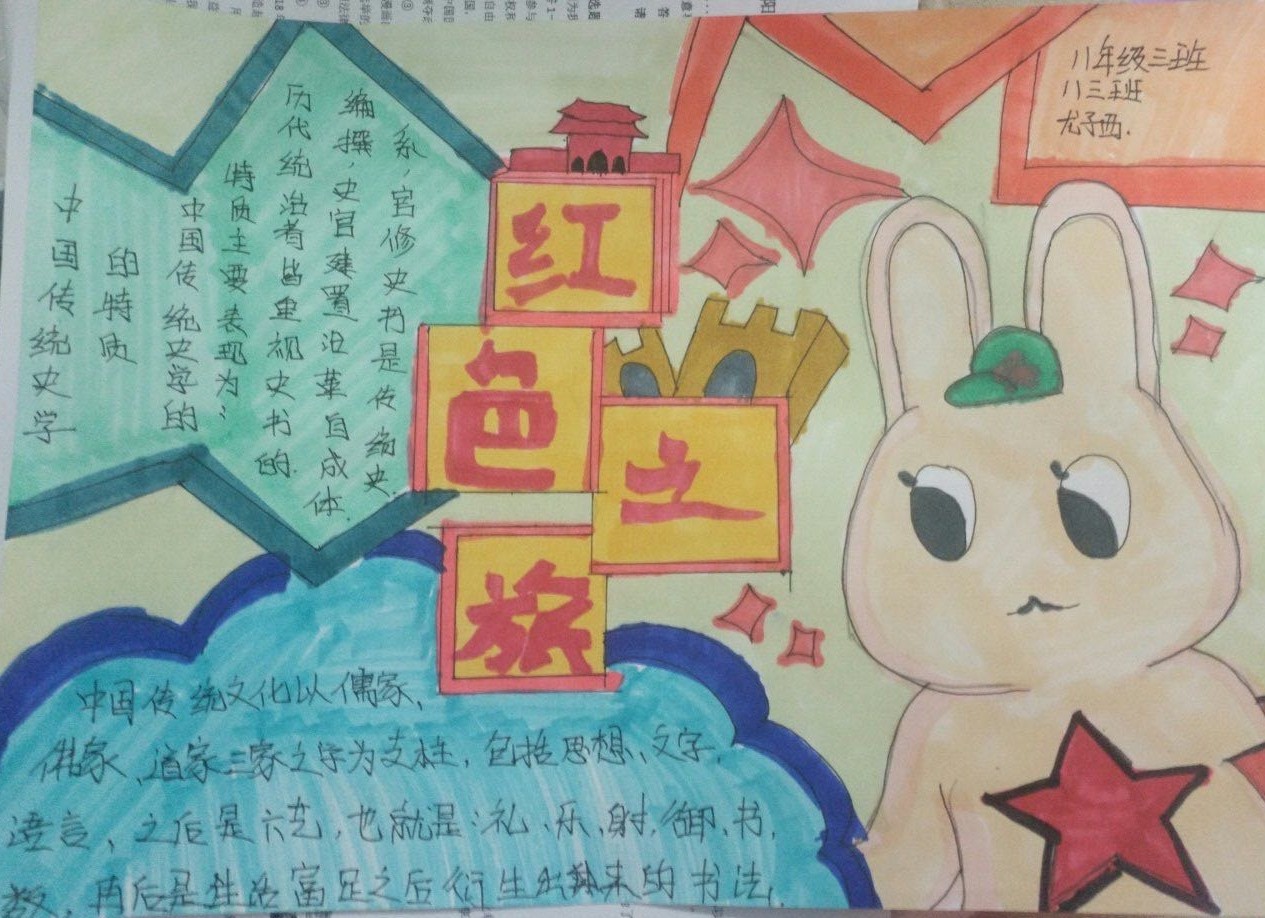 八年级三班
八三班
尤子西.
红
色
之
旅
中国传统史学
的特质
中国传统史学的
特质主要表现为:
历代统治者皆重视史书的
编撰,史官建置沿革自成体
系,官修史书是传统史
中国传统文化以儒家、
佛家、道家三家之学为支柱,包括思想、文字,
语言、之后是六艺,也就是:礼、乐、射、御、书,
数,再后是生活富足之后衍生出来的书法,